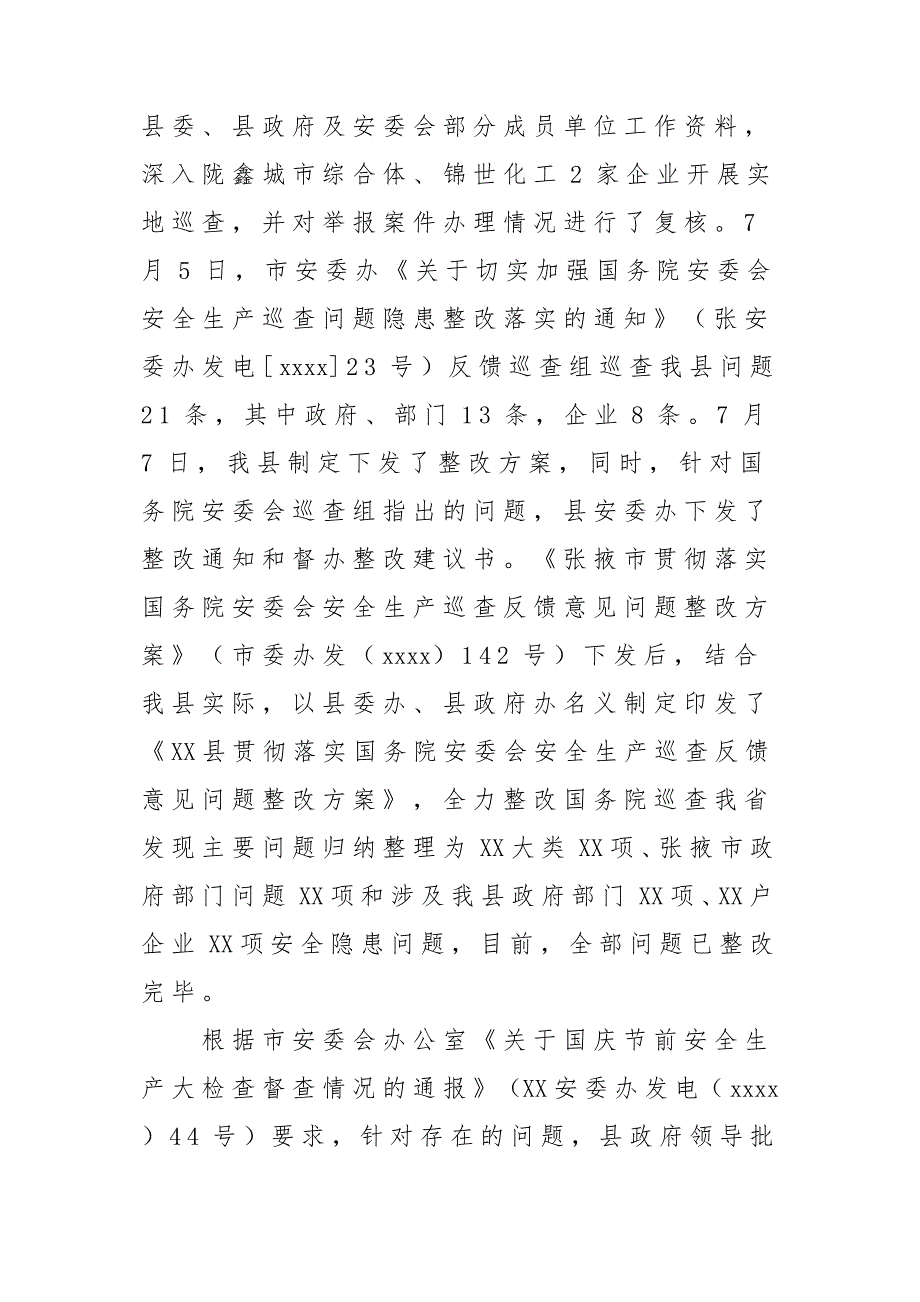 县委、县政府及安委会部分成员单位工作资料，
深入陇鑫城市综合体、锦世化工 2 家企业开展实
地巡查，并对举报案件办理情况进行了复核。7
月 5 日，市安委办《关于切实加强国务院安委会
安全生产巡查问题隐患整改落实的通知》（张安
委办发电[xxxx]23 号）反馈巡查组巡查我县问题
21 条，其中政府、部门 13 条，企业 8 条。7 月
7 日，我县制定下发了整改方案，同时，针对国
务院安委会巡查组指出的问题，县安委办下发了
整改通知和督办整改建议书。《张掖市贯彻落实
国务院安委会安全生产巡查反馈意见问题整改方
案》（市委办发（xxxx）142 号）下发后，结合
我县实际，以县委办、县政府办名义制定印发了
《XX县贯彻落实国务院安委会安全生产巡查反馈
意见问题整改方案》，全力整改国务院巡查我省
发现主要问题归纳整理为 XX大类 XX项、张掖市政
府部门问题 XX项和涉及我县政府部门 XX项、XX户
企业 XX项安全隐患问题，目前，全部问题已整改
完毕。
根据市安委会办公室《关于国庆节前安全生
产大检查督查情况的通报》（XX安委办发电（xxxx
）44 号）要求，针对存在的问题，县政府领导批